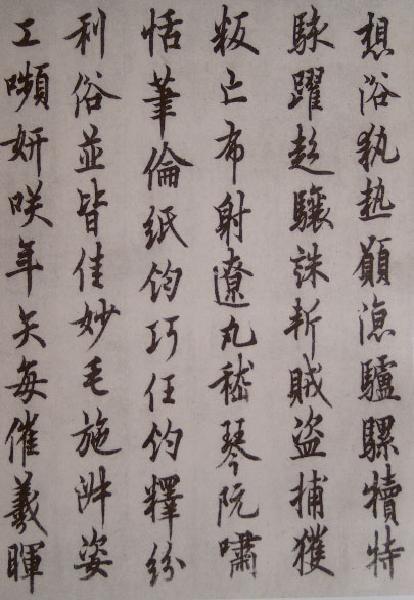 想浴執熱願涼驢騾犢特
駭躍超驤誅斬賊盜捕獲
叛亡布射遼丸嵇琴阮嘯
恬筆倫紙鈞巧任釣釋紛
利俗並皆佳妙毛施淑姿
工嚬妍咲年矢每催羲暉